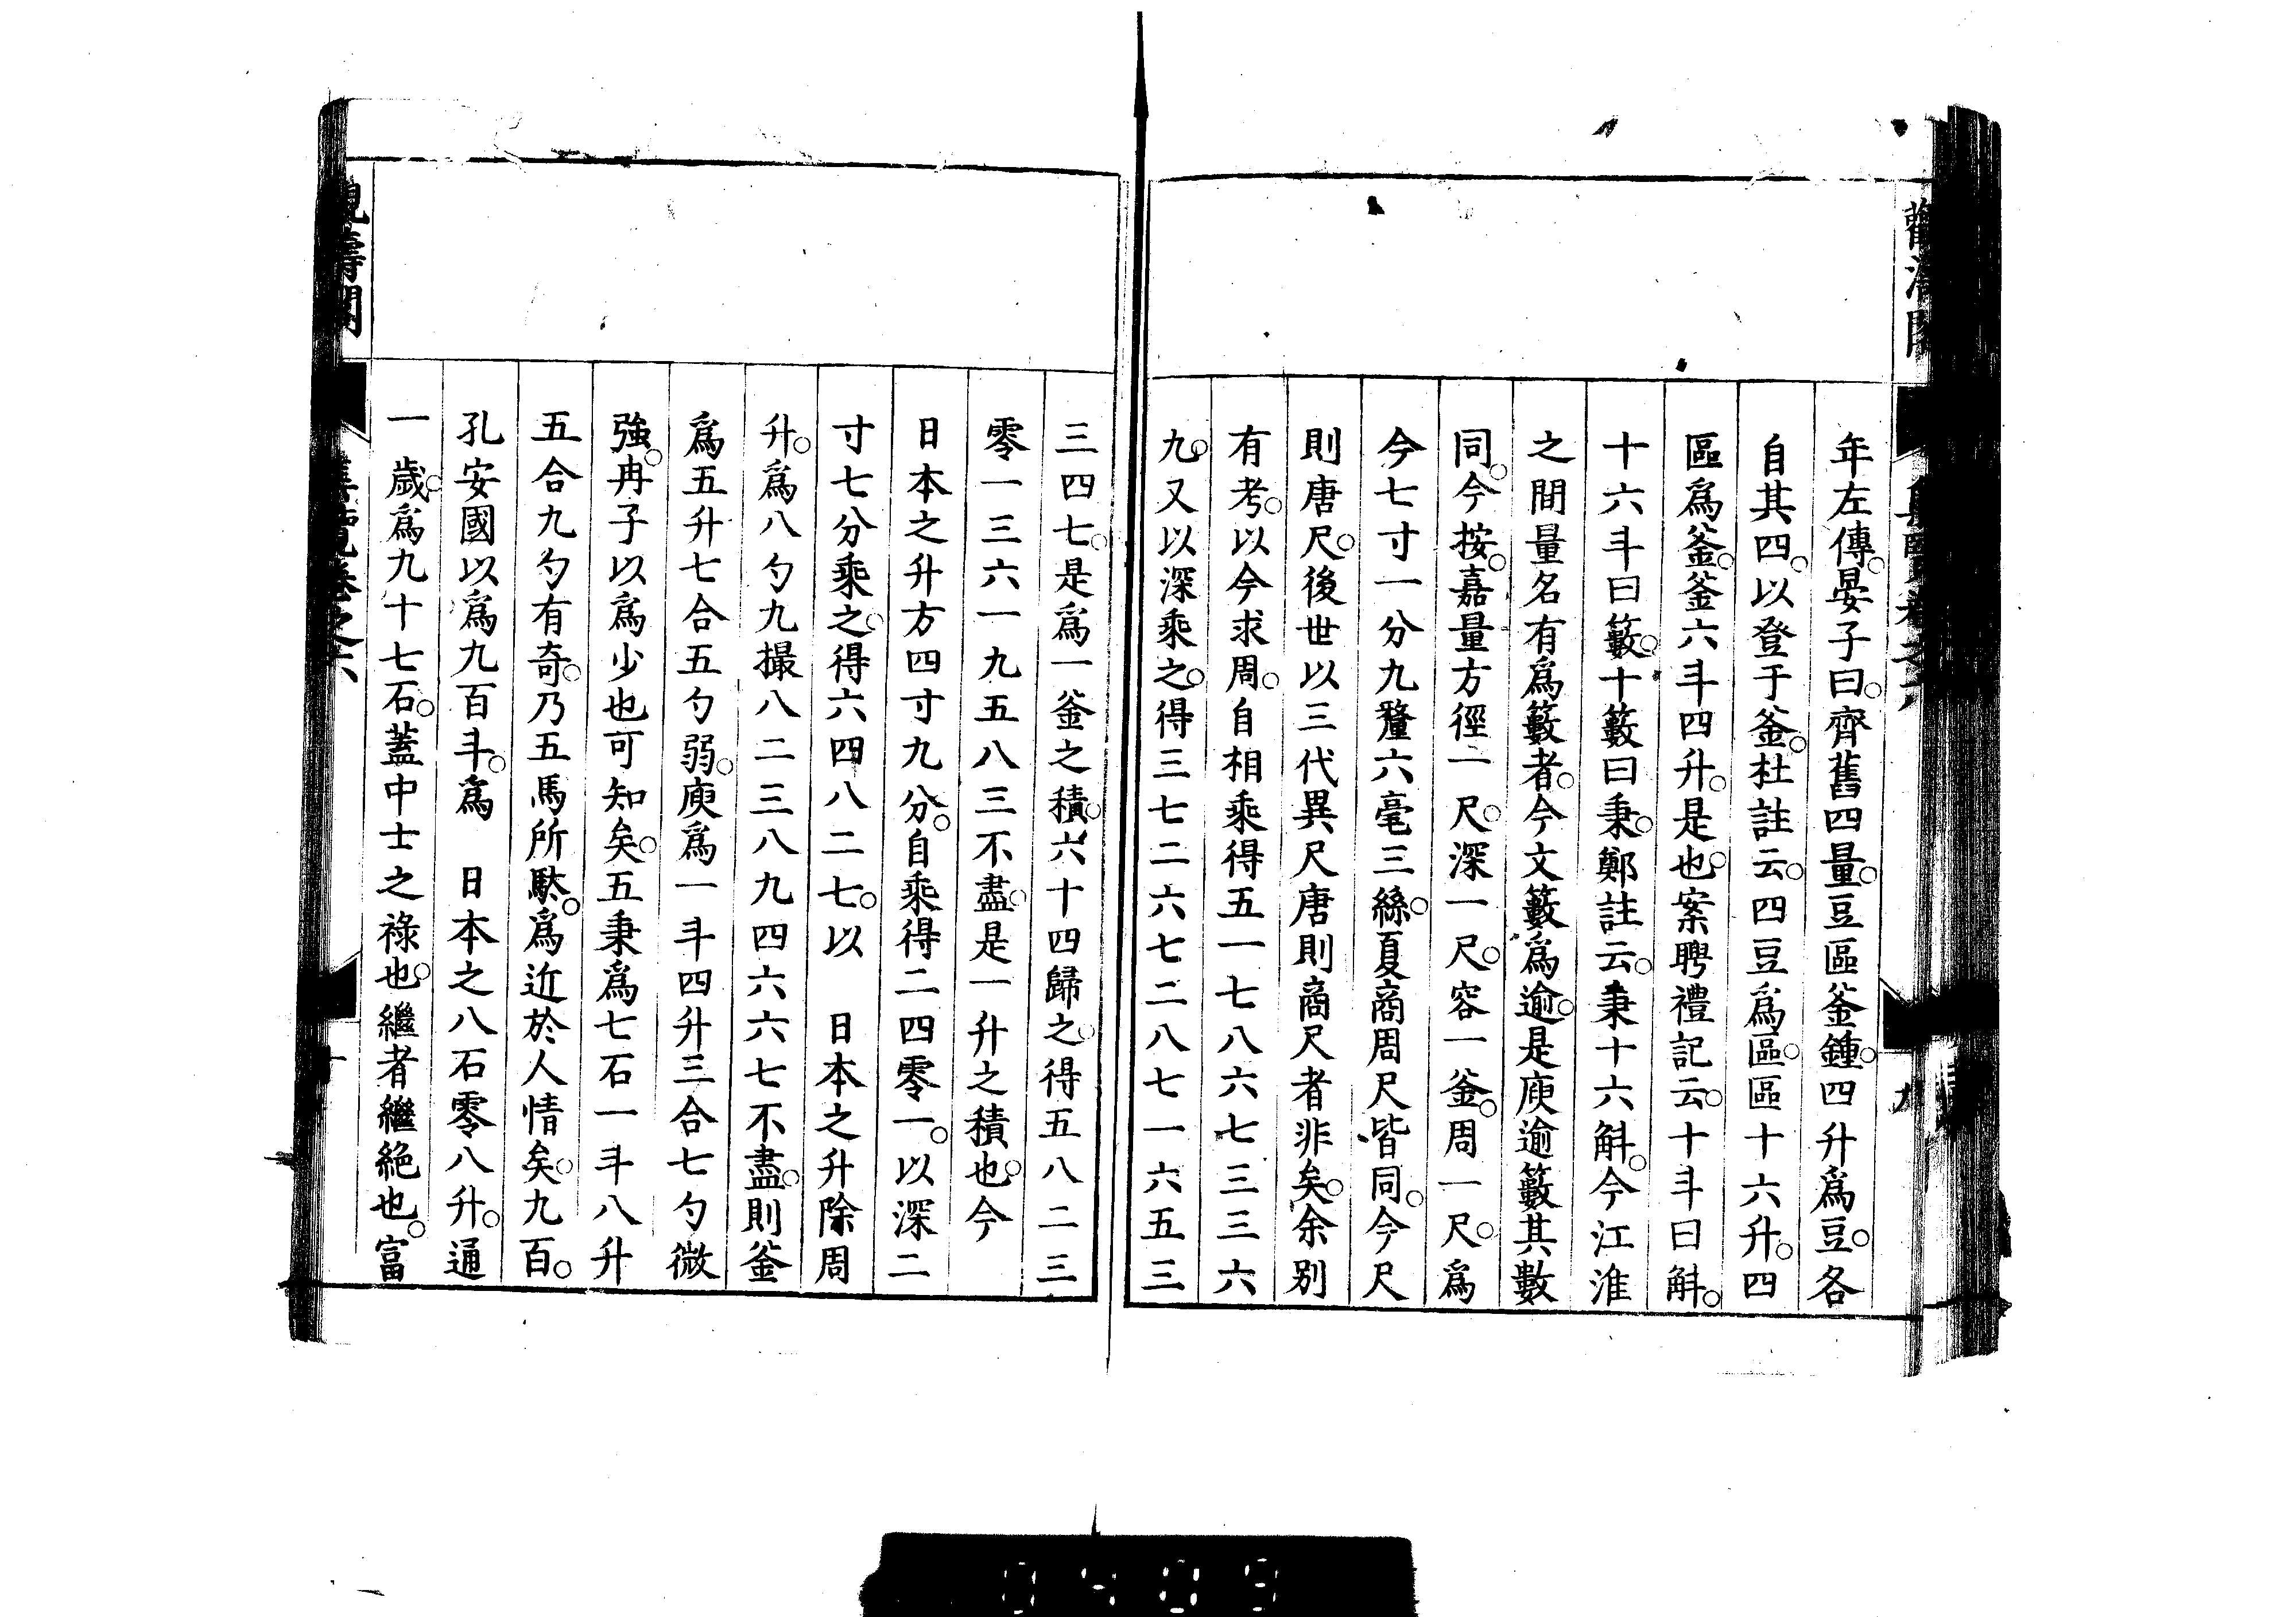 年左傳。晏子曰。齊舊四量。豆區釜鍾。四升爲豆。各
自其四。以登于釜。杜註云。四豆爲區。區十六升。四
區爲釜。釜六斗四升。是也。案聘禮記云。十斗曰斛。
十六斗曰籔。十籔曰秉。鄭註云。秉十六斛。今江淮
之間量名有爲籔者。今文籔爲逾。是庾逾籔其數
同。今按。嘉量方徑一尺。深一尺。容一釜。周一尺。爲
今七寸一分九釐六毫三絲。夏商周尺皆同。今尺
則唐尺。後世以三代異尺唐則商尺者非矣。余別
有考。以今求周。自相乘得五一七八六七三三六
九。又以深乘之。得三七二六七二八七一六五三
三四七。是爲一釜之積。六十四歸之。得五八二三
零一三六一九五八三不盡。是一升之積也。今
日本之升方四寸九分。自乘得二四零一。以深二
寸七分乘之。得六四八二七。以 日本之升除周
升。爲八勺九撮八二三八九四六六七不盡。則釜
爲五升七合五勺弱。庾爲一斗四升三合七勺微
強。冉子以爲少也可知矣。五秉爲七石一斗八升
五合九勺有奇。乃五馬所駄。爲近於人情矣。九百。
孔安國以爲九百斗。爲 日本之八石零八升。通
一歲。爲九十七石。蓋中士之祿也。繼者繼絕也。富